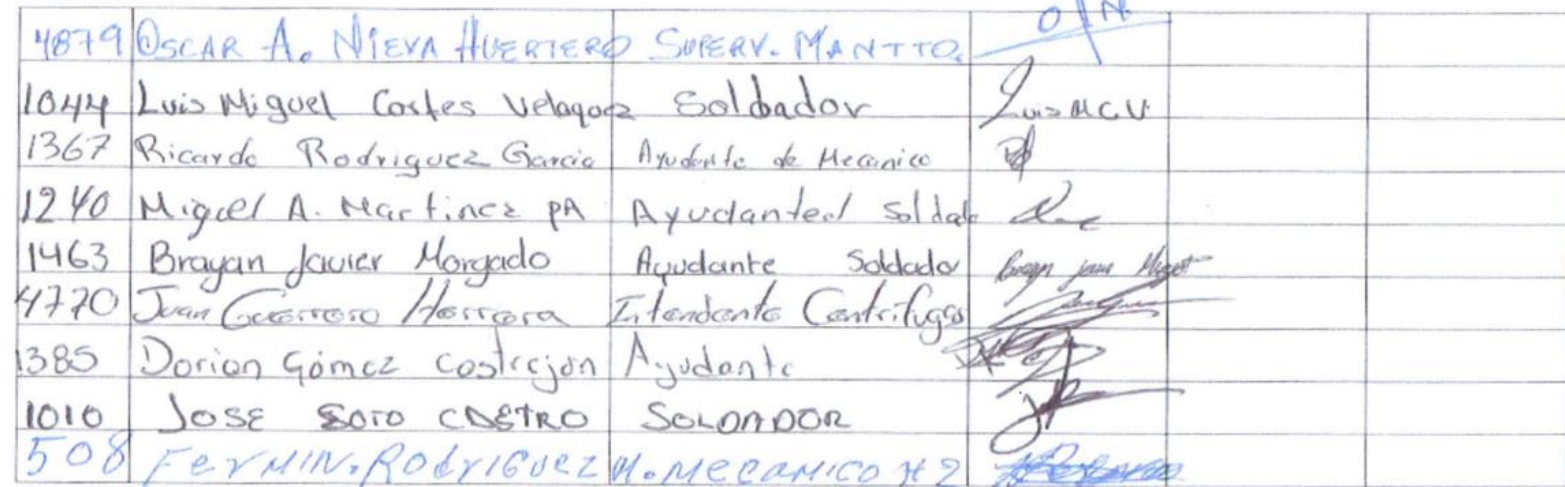 4879 OSCAR A. NIEVA HUERTERO SUPERV. MANTTO.
1044 Luis Miguel Cortes Velaquez Soldador Luis M.C.V.
1367 Ricardo Rodriguez Garcia Ayudante de Mecanico
1240 Miguel A. Martinez PA Ayudanted Soldado
1463 Brayan Javier Morgado Ayudante Soldado
4770 Juan Guerrero Herrera Itendente Centrifugas
1385 Dorian Gómez Castrejon Ayudante
1010 JOSE SOTO CASTRO SOLDADOR
508 FERMIN. RodriGuez M. MeCANICO #2